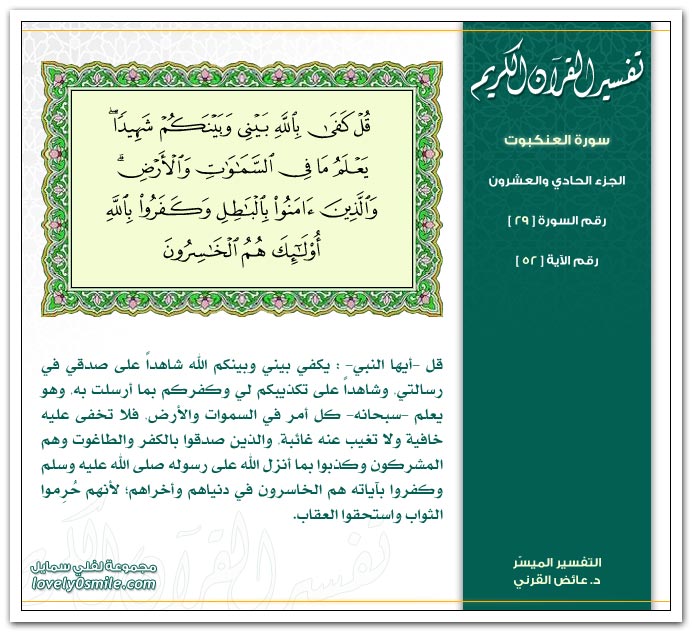 تفسير القرآن الكريم
سورة العنكبوت
الجزء الحادي والعشرون
رقم السورة [ ٢٩ ]
رقم الآية [ ٥٢ ]
قُلْ كَفَىٰ بِٱللَّهِ بَيْنِى وَبَيْنَكُمْ شَهِيدًا ۖ
يَعْلَمُ مَا فِى ٱلسَّمَٰوَٰتِ وَٱلْأَرْضِ ۗ
وَٱلَّذِينَ ءَامَنُوا۟ بِٱلْبَٰطِلِ وَكَفَرُوا۟ بِٱللَّهِ
أُو۟لَٰٓئِكَ هُمُ ٱلْخَٰسِرُونَ
قل -أيها النبي- : يكفي بيني وبينكم الله شاهداً على صدقي في
رسالتي، وشاهداً على تكذيبكم لي وكفركم بما أرسلت به، وهو
يعلم -سبحانه- كل أمر في السموات والأرض، فلا تخفى عليه
خافية ولا تغيب عنه غائبة، والذين صدقوا بالكفر والطاغوت وهم
المشركون وكذبوا بما أنزل الله على رسوله صلى الله عليه وسلم
وكفروا بآياته هم الخاسرون في دنياهم وأخراهم؛ لأنهم حُرِموا
الثواب واستحقوا العقاب.
التفسير الميسّر
د. عائض القرني
مجموعة لفلي سمايل
lovely0smile.com
تفسير القرآن الكريم